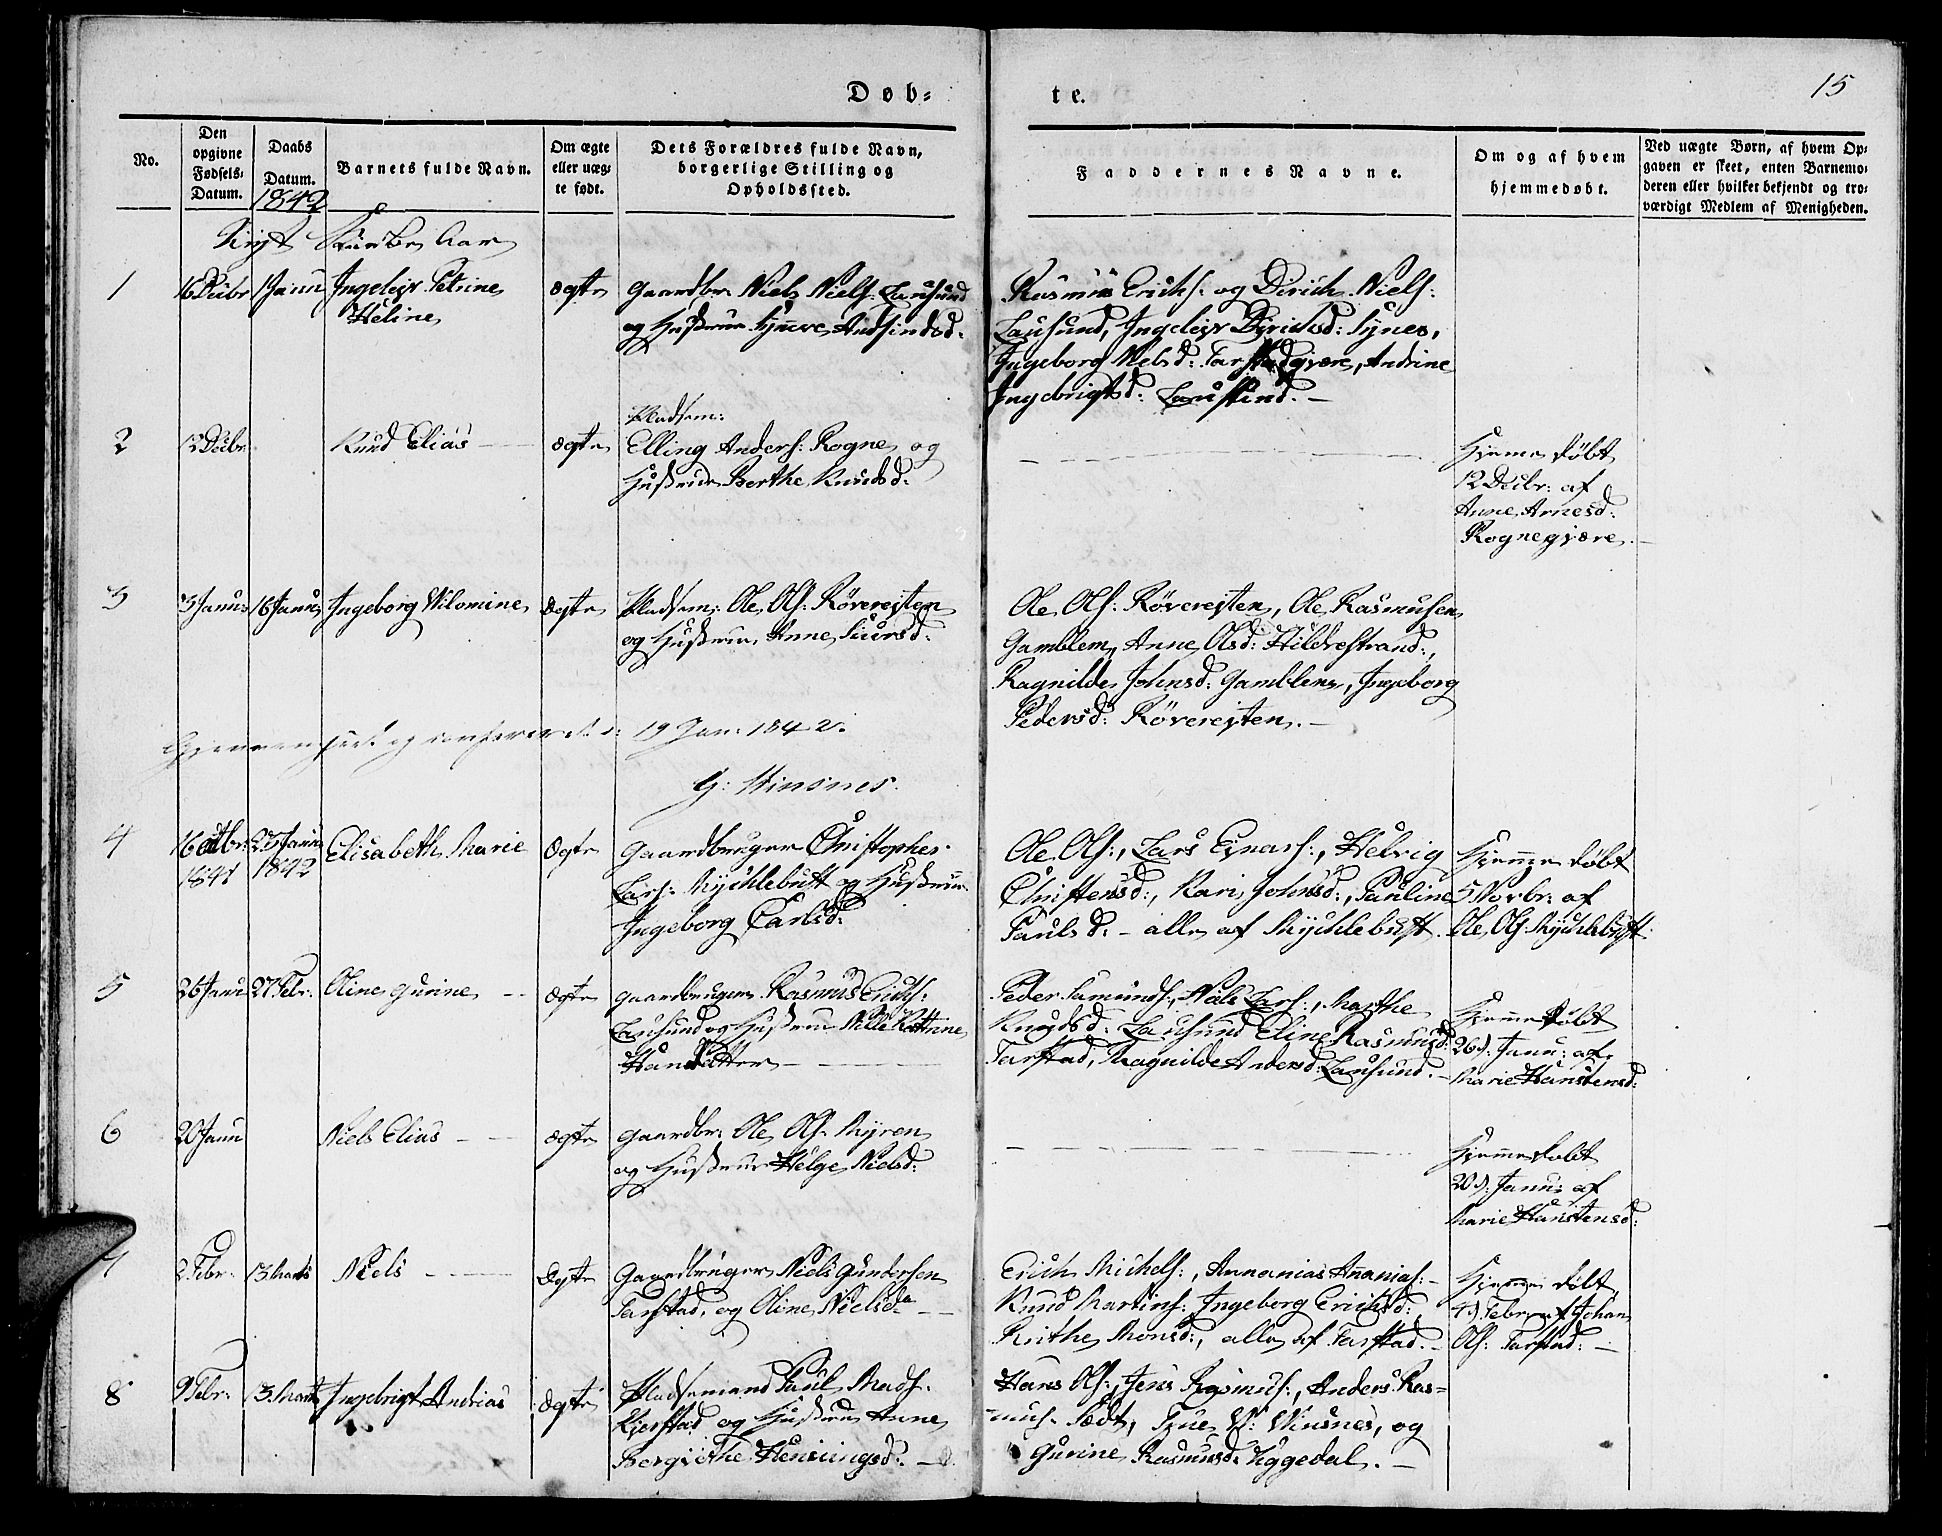 Døb=
te.
15
No.
Den opgivne Fødsels-Datum.
Daabs Datum.
1842
Barnets fulde Navn.
Om ægte eller uægte født.
Dets Forældres fulde Navn, borgerlige Stilling og Opholdssted.
Faddernes Navne.
Om og af hvem hjemmedøbt.
Ved uægte Børn, af hvem Opgaven er skeet, enten Barnemoderen eller hvilket bekjendt og troværdigt Medlem af Menigheden.
Aar
1
16 Decbr
1 Janu
Ingeleiv Petrine
Heline
ægte
Gaardbr. Niels Niels. Lausund
og Hustrue Synneve
Rasmus Erichs: og Dirich Niels:
Lausund, Ingeleiv Synes,
Ingeborg Nielsd: Tarstadgjære, Andrine
Ingebrigtsd: Lausund. –
2
12 Decbr
Knud Elias
ægte
Pladsem:
Elling Anders: Rogne og
Hustrue Berthe Knudsd:
Hjemme døbt
12 Decbr: af
Anne Arnesd:
Rognegjære. –
3
3 Janu:
16 Janu:
Ingeborg Wilomine
ægte
Pladsem: Ole Ols: Röverejten
og Hustrue Anne Siursd:
Ole Ols: Röverejten, Ole Rasmusen
Gamblem, Anne Olsd: Hildrestrand,
Ragnilde Johnsd: Gamblem, Ingeborg
Pedersd: Röverejten. –
og confereret d: 19 Jan: 1842.
G: Winsnes.
4
16 Octbr:
1841
23 Janu
1842
Elisabeth Marie
ægte
Gaardbruger Christopher
Lars: Mychlebust og Hustrue
Ingeborg Carlsd:
Ole Ols:, Lars Ejnars:, Helvig
Christensd:, Kari Johnsd:, Pauline
Paulsd: – alle af Mychlebust.
Hjemme døbt
5 Novbr: af
Ole Ols: Mychlebust.
5
26 Janu
27 Febr:
Oline Gurine
ægte
Gaardbruger Rasmus Erichs:
Lausund og Hustrue Nille Kattrine
Peder Samunds:, Niels Lars:, Marthe
Knudsd: Lausund Eline Rasmusd:
Tarstad, Ragnilde Andersd: Lausund. –
Hjemme døbt
26d: Janu: af
Marie Hanstensd:
6
20 Janu
Niels Elias
ægte
Gaardbr: Ole Ols: Myren
og Hustrue Helge Nielsd:
Hjemme døbt
20d: Janu: af
Marie Hanstensd:
7
2 Febr:
13 Marts
Niels
ægte
Gaardbruger Niels Gundersen
Tarstad, og Oline Nielsda –
Erich Michels:, Annanias Ananias: –
Knud Martins: Ingeborg Erichsd:
Monsd:, alle af Tarstad. –
Hjemme døbt
4d: Febr: af Johan
Ols: Tarstad: –
8
9 Febr:
13 Marts
Ingebrigt Andrias
ægte
Pladsemand Paul Mads:
Kjerstad og Hustrue Anne
Henningsd: –
Hans Ols:, Jens Rasmus:, Anders Ras=
mus: Sædt, W: Winsnes, og
Gurine Rasmusd: Uggedal. –